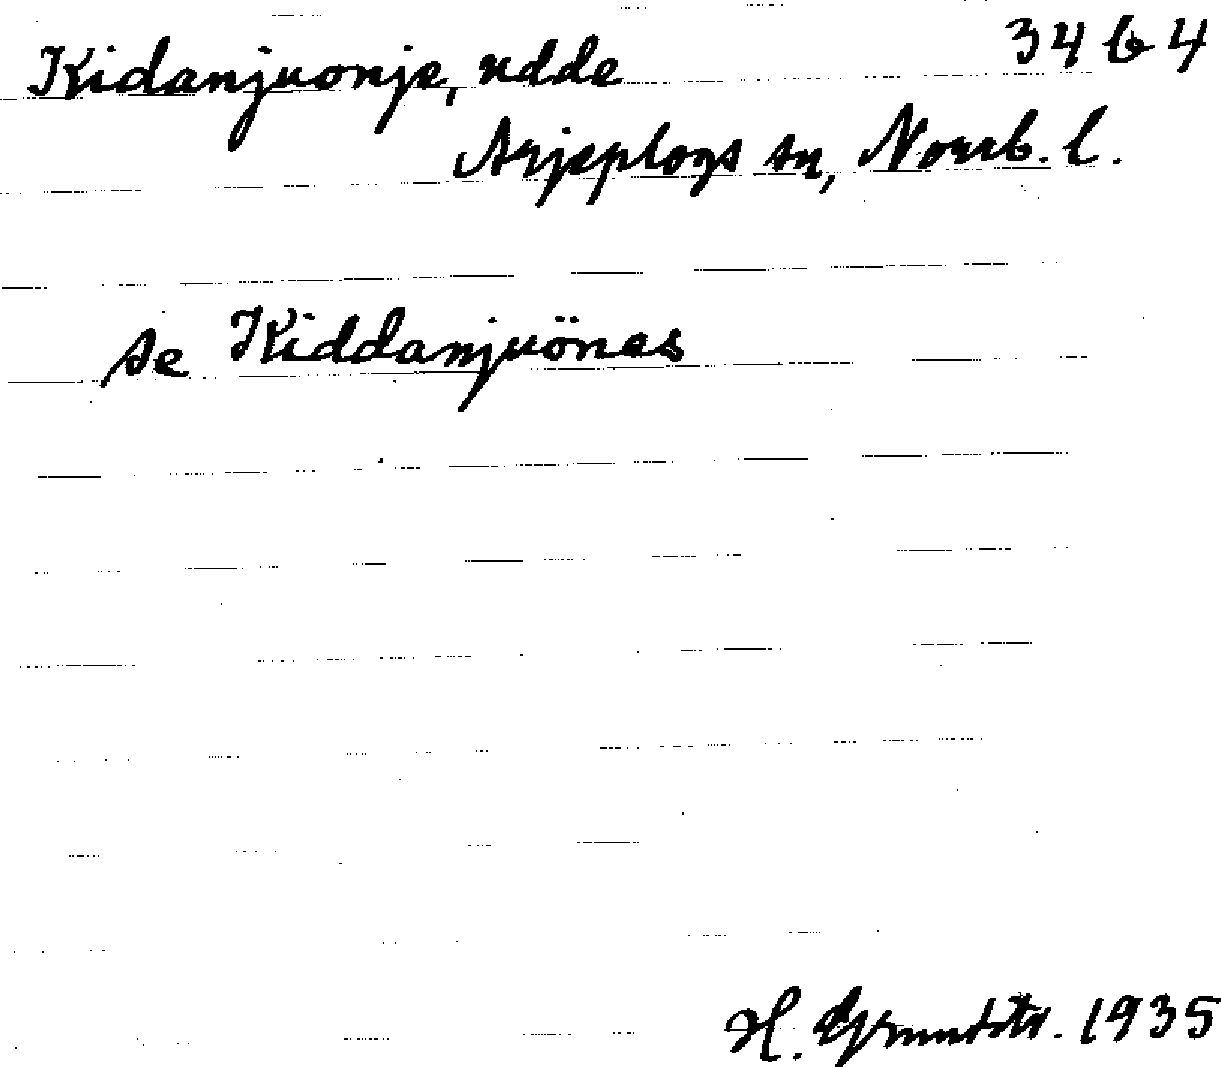 Kidanjuonje, udde 34 b 4
Arjeplogs sn, Norrb. l.
se Kiddanjuönes
H. Grundstr. 1935